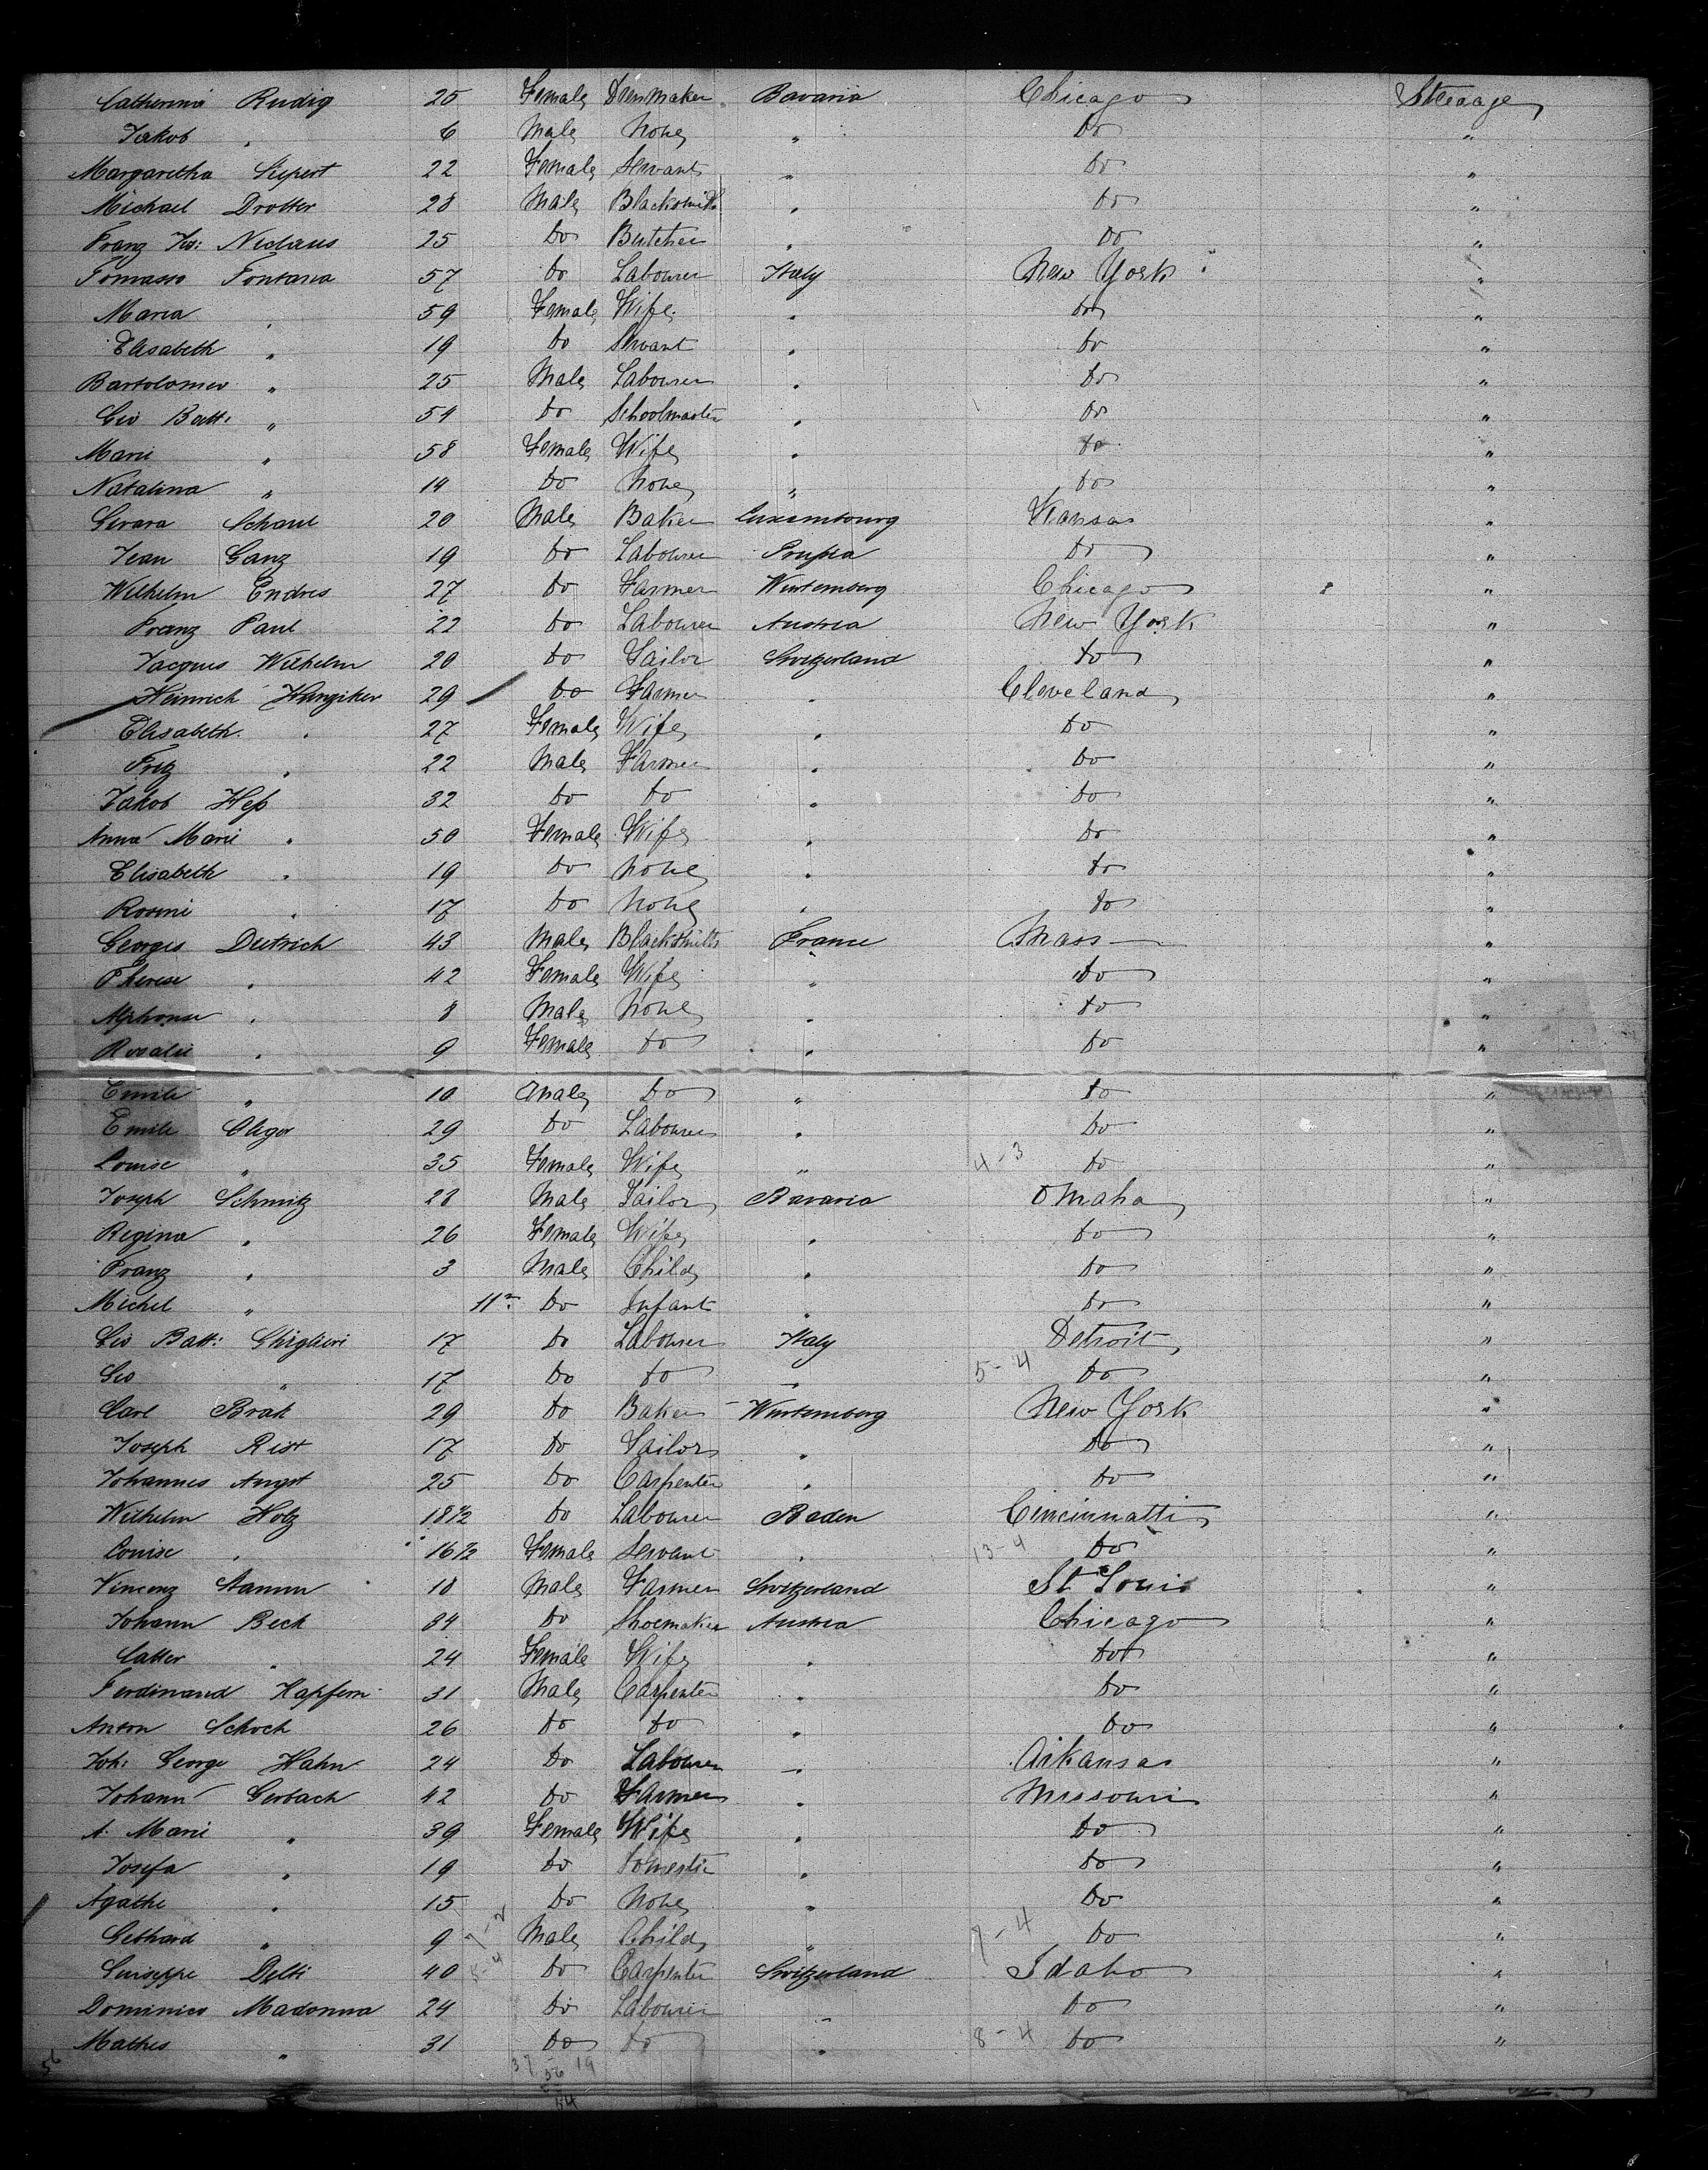 Catherina Rudig 25 Female Dressmaker Bavaria Chicago Steerage
Jakob " 6 Male None " Do "
Margaretha Siepert 22 Female Servant " Do "
Michael Drotter 28 Male Blacksmith " Do "
Franz Jos: Niclaus 25 Do Butcher " Do "
Tomasso Fontana 57 Do Labourer Italy New York "
Maria " 59 Female Wife " Do "
Elisabeth " 19 Do Servant " Do "
Bartolomeo " 25 Male Labourer " Do "
Gio Batt: " 54 Do Schoolmaster " Do "
Marie " 58 Female Wife " Do "
Natalina " 14 Do None " Do "
Schaul 20 Male Baker Luxembourg Kansas "
Jean Ganz 19 Do Labourer Prussia Do "
Wilhelm Endres 27 Do Farmer Wurtemberg Chicago "
Franz Paul 22 Do Labourer Austria New York "
Jacques Wilhelm 20 Do Tailor Switzerland Do "
Heinrich Hunziker 29 Do Farmer " Cleveland "
Elisabeth " 27 Female Wife " Do "
Fritz " 22 Male Farmer " Do "
Jakob Heß 32 Do Do " Do "
Anna Marie " 50 Female Wife " Do "
Elisabeth " 19 Do None " Do "
Rosine " 17 Do None " Do "
Georges Dietrich 43 Male Blacksmith France Mass "
Therese " 42 Female Wife " Do "
Alphonse " 8 Male None " Do "
Rosalie " 9 Female Do " Do "
Emile " 10 Male Do " Do "
Emile Oliger 29 Do Labourer " Do "
Louise " 35 Female Wife " 4-3 Do "
Joseph Schmitz 28 Male Tailor Bavaria Omaha "
Regina " 26 Female Wife " Do "
Franz " 3 Male Child " Do "
Michel " 11m Do Infant " Do "
Gio Batt: Ghiglieri 17 Do Labourer Italy Detroit "
Gio " 17 Do Do " 5-4 Do "
Carl Brak 29 Do Baker Wurtemberg New York "
Joseph Rist 17 Do Tailor " Do "
Johannes Angst 25 Do Carpenter " Do "
Wilhelm Holz 18 1/2 Do Labourer Baden Cincinnatti "
Louise " 16 1/2 Female Servant " 13-4 Do "
Vincenz Stamm 18 Male Farmer Switzerland St Louis "
Johann Beck 34 Do Shoemaker Austria Chicago "
Cather " 24 Female Wife " Do "
Ferdinand 31 Male Carpenter " Do "
Anton Schoch 26 Do Do " Do "
Joh: George Hahn 24 Do Labourer " Arkansas "
Johann Gerbach 42 Do Farmer " Missouri "
A. Marie " 39 Female Wife " Do "
Josefa " 19 Do Domestic " Do "
Agathe " 15 Do None " Do "
Gebhard " 9 7-2 Male Child " 7-4 Do "
Guiseppe Delli 40 5-4 Do Carpenter Switzerland Idaho "
Dominico Madonna 24 Do Labourer " Do "
Mathes " 31 Do Do " 8-4 Do "
56 37 19
56